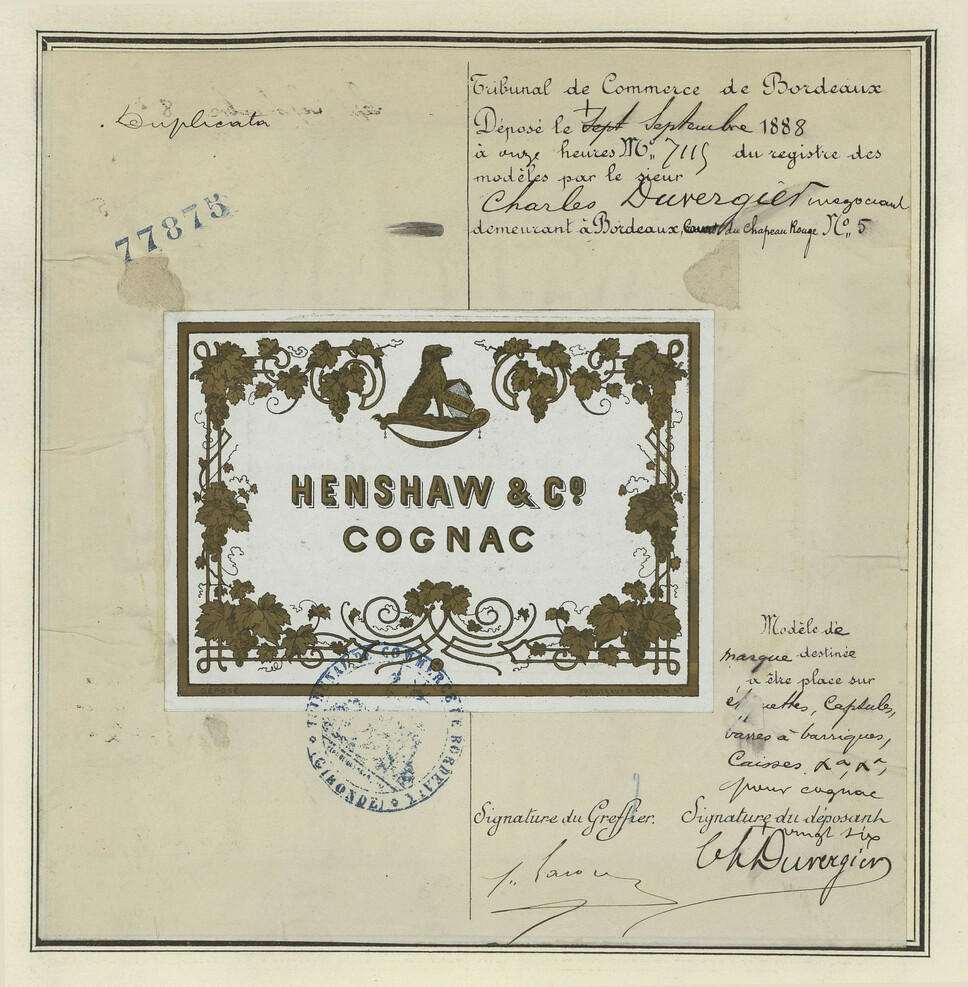 Duplicata
77875
Tribunal de Commerce de Bordeaux
Déposé le Sept Septembre 1888
à onze heures M. Nº 7115 du registre des
modèles par le sieur
Charles Duvergier negociant
demeurant à Bordeaux, du Chapeau Rouge Nº 5
HENSHAW & Cº
COGNAC
DÉPOSÉ
TRIBUNAL DE COMMERCE DE BORDEAUX
(GIRONDE)
Modèle de
marque destinée
à être place sur
étiquettes, Capsules,
barres à barriques,
Caisses
pour cognac
Signature du Greffier. Signature du déposant
vingt six
Ch Duvergier